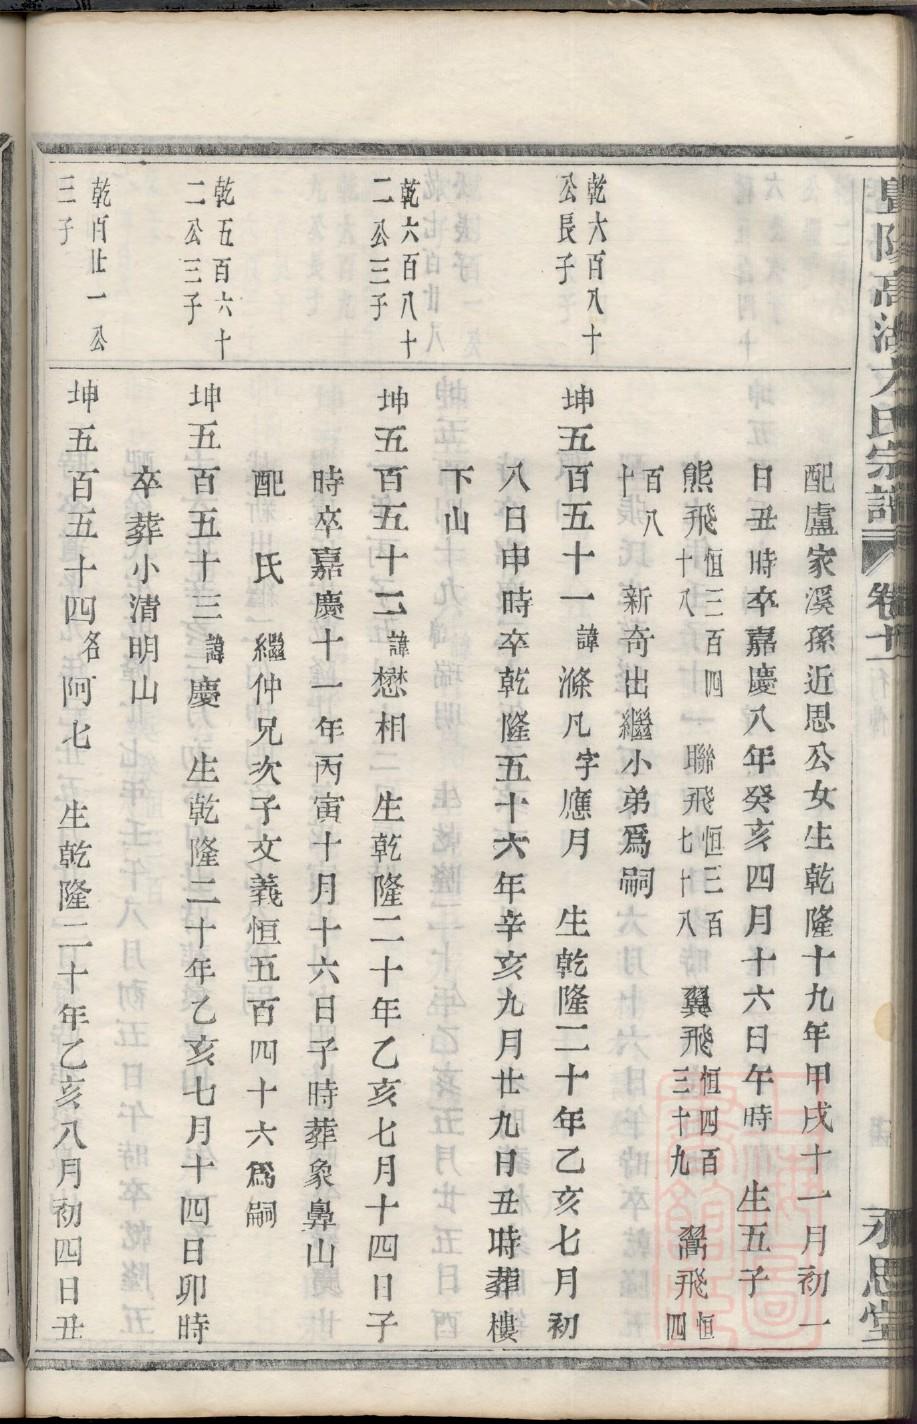 高湖方氏宗譜
卷十
永思堂
配盧家溪孫近思公女生乾隆十九年甲戌十一月初一
日丑時卒嘉慶八年癸亥四月十六日午時 生五子
熊飛恒三百四十八 聯飛恒三百七十八 翼飛恒四百三十九 翥飛恒四
百八十 新奇出繼小弟爲嗣
乾六百八十
公長子
坤五百五十一諱滌凡字應月 生乾隆二十年乙亥七月初
八日申時卒乾隆五十六年辛亥九月廿九日丑時葬樓
下山
乾六百八十
二公三子
坤五百五十二諱懋相 生乾隆二十年乙亥七月十四日子
時卒嘉慶十一年丙寅十月十六日子時葬象鼻山
配 氏 繼仲兄次子文義恒五百四十六爲嗣
乾五百六十
二公三子
坤五百五十三諱慶 生乾隆二十年乙亥七月十四日卯時
卒葬小清明山
乾百廿一公
三子
坤五百五十四名阿七 生乾隆二十年乙亥八月初四日丑